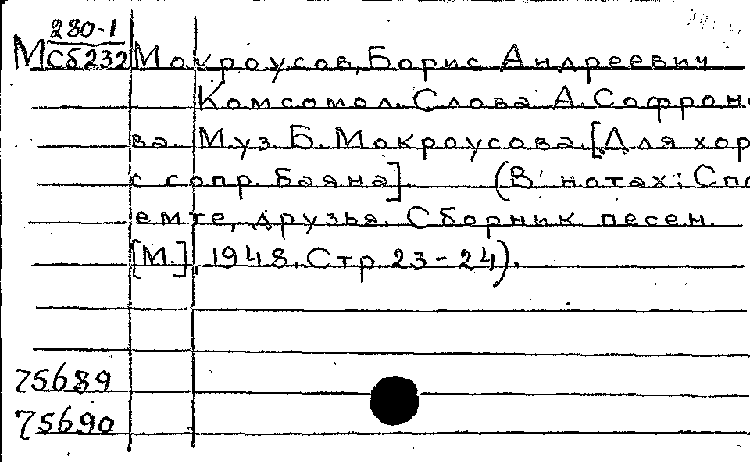 280-1
М Сб232 Мокроусов, Борис Андреевич
Комсомол. Слова А. Софроно
ва. Муз. Б. Мокроусова. [Для хор
с сопр. баяна]. (В нотах: Спо
емте, друзья. Сборник песен.
[М.], 1948. Стр. 23-24).
75689
75690